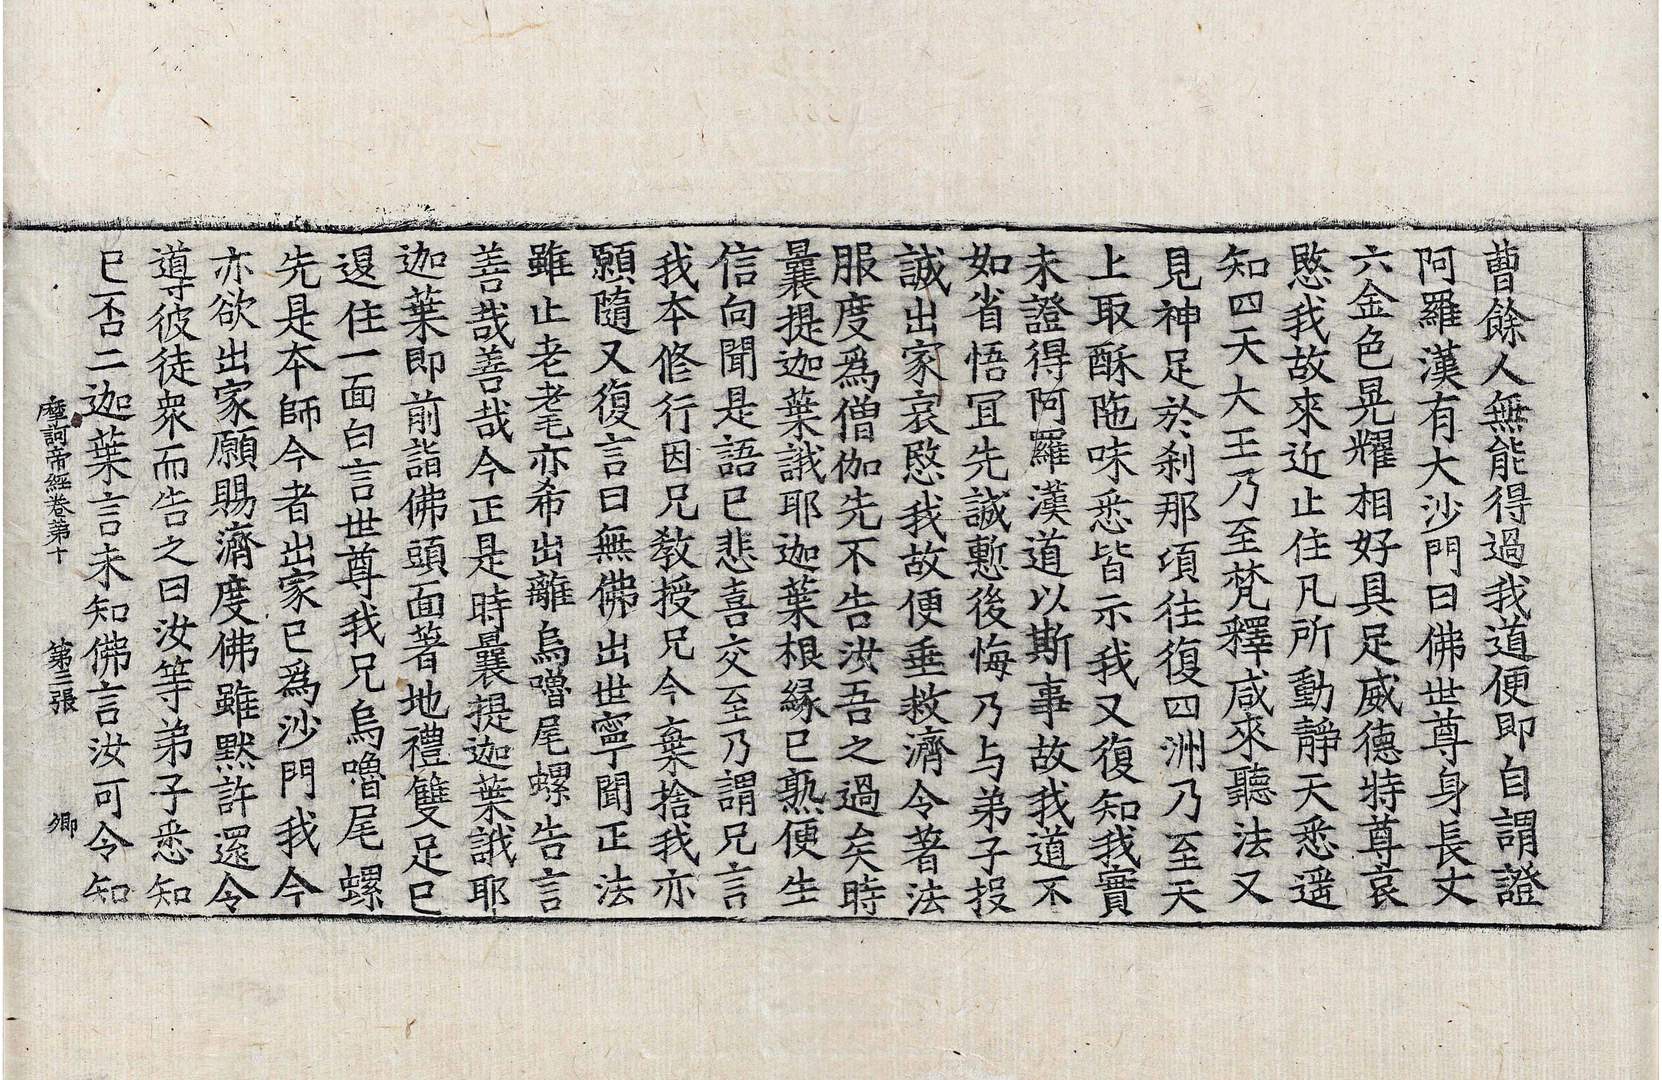 曹餘人無能得過我道便即自謂證
阿羅漢有大沙門曰佛世尊身長丈
六金色晃耀相好具足威德特尊哀
愍我故來近止住凡所動靜天悉遥
知四天大王乃至梵釋咸來聽法又
見神足於刹那頃往復四洲乃至天
上取酥陁味悉皆示我又復知我實
未證得阿羅漢道以斯事故我道不
如省悟冝先誠慙後悔乃与弟子投
誠出家哀愍我故便垂救濟令著法
服度爲僧伽先不告汝吾之過矣時
曩提迦葉誐耶迦葉根緣已熟便生
信向聞是語已悲喜交至乃謂兄言
我本修行因兄教授兄今棄捨我亦
願隨又復言曰無佛出世寧聞正法
雖止老耄亦希出離烏嚕尾螺告言
善哉善哉今正是時曩提迦葉誐耶
迦葉即前詣佛頭面著地禮雙足已
退住一面白言世尊我兄烏嚕尾螺
先是本師今者出家已爲沙門我今
亦欲出家願賜濟度佛雖黙許還令
導彼徒衆而告之曰汝等弟子悉知
已否二迦葉言未知佛言汝可令知
摩訶帝經卷第十 第三張 卿